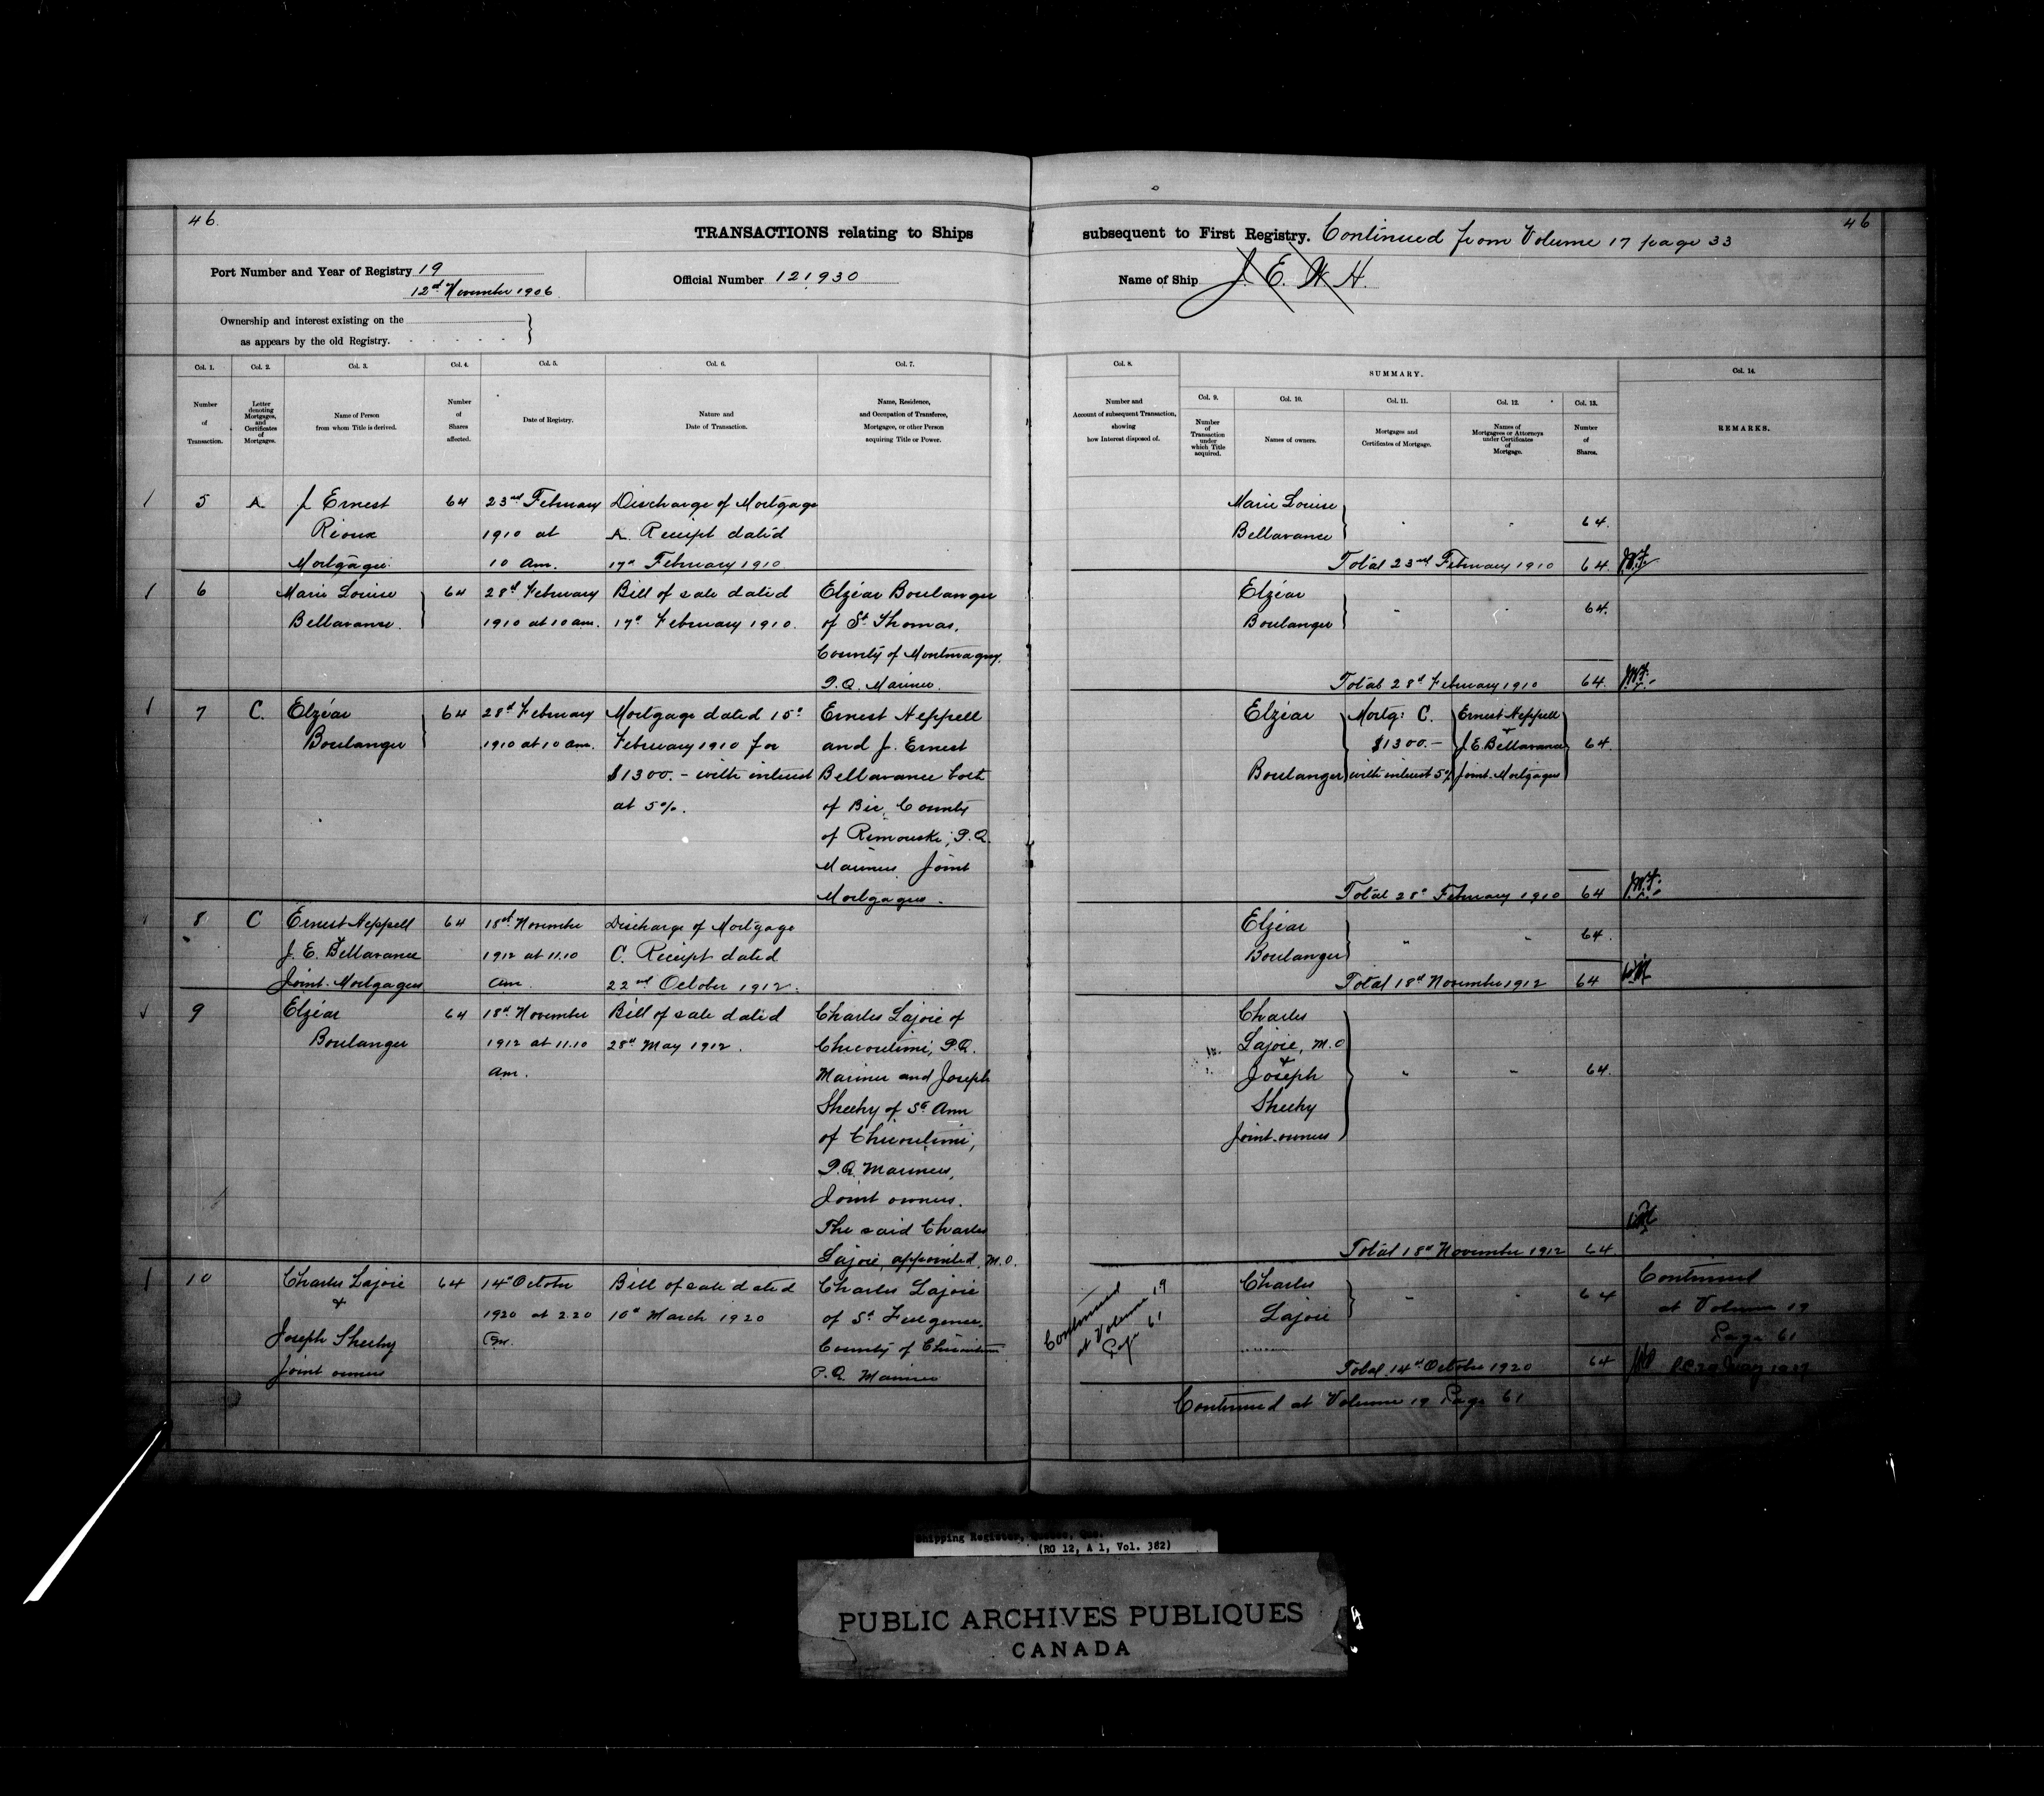 46.
46
TRANSACTIONS relating to Ships subsequent to First Registry. Continued from Volume 17 page 33
Port Number and Year of Registry 19
12th November 1906
Official Number 121930
Name of Ship J. E. W. H.
Ownership and interest existing on the
as appears by the old Registry.
Col. 1. Col. 2. Col. 3. Col. 4. Col. 5. Col. 6. Col. 7. Col. 8. SUMMARY. Col. 14.
Col. 9. Col. 10. Col. 11. Col. 12. Col. 13.
Number
of
Transaction.
Letter
denoting
Mortgages,
and
Certificates
of
Mortgages.
Name of Person
from whom Title is derived.
Number
of
Shares
affected.
Date of Registry.
Nature and
Date of Transaction.
Name, Residence,
and Occupation of Transferee,
Mortgagee, or other Person
acquiring Title or Power.
Number and
Account of subsequent Transaction,
showing
how Interest disposed of.
Number
of
Transaction
under
which Title
acquired.
Names of owners.
Mortgages and
Certificates of Mortgage.
Names of
Mortgagees or Attorneys
under Certificates
of
Mortgage.
Number
of
Shares.
REMARKS.
5 A J Ernest 64 23rd February Discharge of Mortgage Marie Louise
Rioux 1910 at A Receipt dated Bellavance 64.
Mortgagee. 10 am. 17th February 1910. Total 23rd February 1910 64.
6 Marie Louise 64 28th February Bill of sale dated Elzéar Boulanger Elzéar 64.
Bellavance. 1910 at 10 am. 17th February 1910. of St Thomas, Boulanger
County of Montmagny,
P.Q. Mariner. Total 28th February 1910 64.
7 C. Elzéar 64 28th February Mortgage dated 15th Ernest Heppell Elzéar Mortg: C. Ernest Heppell
Boulanger 1910 at 10 am. February 1910 for and J. Ernest $1300.- & J. E. Bellavance 64.
$1300.- with interest Bellavance both Boulanger with interest 5% Joint Mortgagees
at 5%. of Bic, County
of Rimouski, P.Q.
Mariners. Joint
Mortgagees. Total 28th February 1910 64
8 C Ernest Heppell 64 18th November Discharge of Mortgage Elzéar 64.
& J. E. Bellavance 1912 at 11.10 C. Receipt dated Boulanger
Joint Mortgagees am. 22nd October 1912. Total 18th November 1912 64
9 Elzéar 64 18th November Bill of sale dated Charles Lajoie of Charles
Boulanger 1912 at 11.10 28th May 1912. Chicoutimi, P.Q. Lajoie, M.O
am. Mariner and Joseph & Joseph 64.
Sheehy of St Ann Sheehy
of Chicoutimi, Joint owners
P.Q. Mariners,
Joint owners.
The said Charles
Lajoie, appointed M.O. Total 18th November 1912 64
10 Charles Lajoie 64 14th October Bill of sale dated Charles Lajoie Continued Charles 64 Continued
& 1920 at 2.20 10th March 1920 of St Fulgence, at Volume 19 Lajoie at Volume 19
Joseph Sheehy pm. County of Chicoutimi Page 61 Page 61
Joint owners P.Q. Mariner Total 14th October 1920 64
Continued at Volume 19 Page 61
Shipping Register, Quebec, Que.
(RG 12, A 1, Vol. 382)
PUBLIC ARCHIVES PUBLIQUES
CANADA